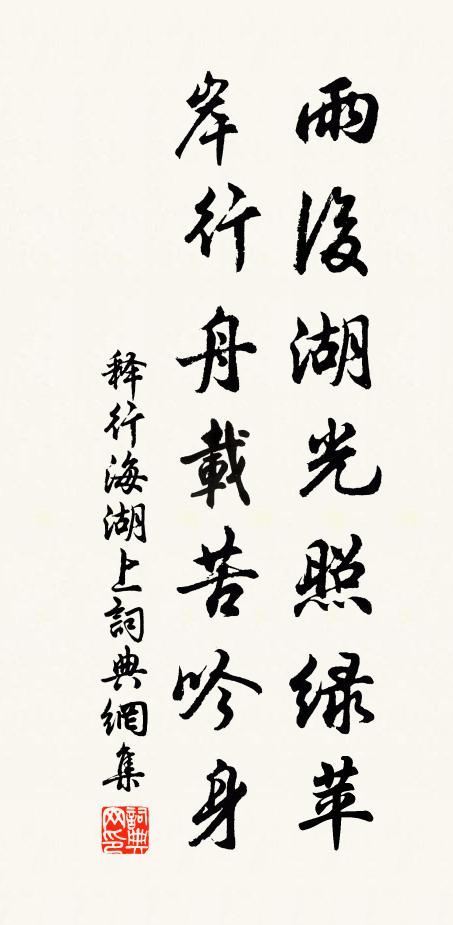 雨後湖光照緑苹
岸行舟載苦吟身
释行海湖上詞典網集
詞典
网印